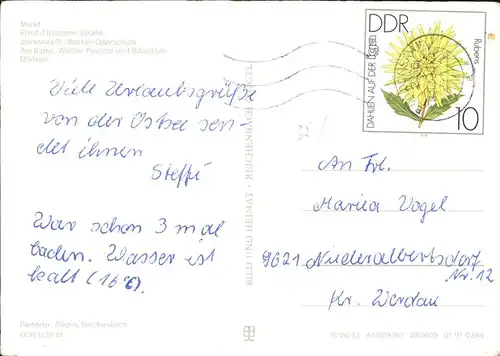 Markt
Ernst-Thälmann-Straße
Johannes-R.-Becher-Oberschule
Am Kamp, Weißer Pavillon und Bibliothek
Münster
Viele Urlaubsgrüße
von der Ostsee sen-
det ihnen
Steffi
War schon 3 mal
baden. Wasser ist
kalt (16°C).
BILD UND HEIMAT · REICHENBACH (VOGTL)
DDR
DAHLIEN AUF DER
Rubens
10
An Frl.
Marita Vogel
9621 Niederalbertsdorf
Nr. 12
Kr. Werdau
Reichenbach
III/26/13 280609 01 01 0344